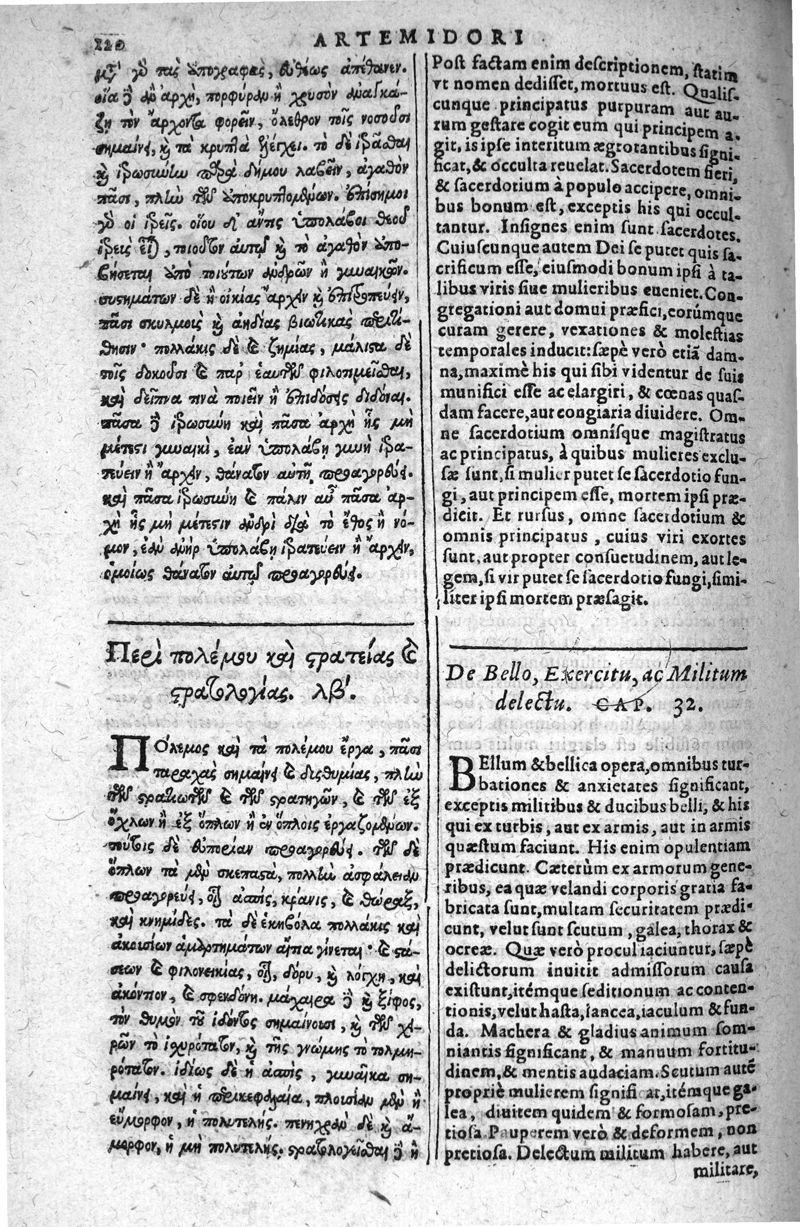 220
ARTEMIDORI
μετὰ γὸ τὰς ὑπογραφὰς, εὐθέως ἀπέθανεν.
οἵα δ' ἂν ἀρχὴ, πορφύραν ἢ χρυσὸν ἀναγκά-
ζῃ τὸν ἄρχοντα φορεῖν, ὄλεθρον τοῖς νοσοῦσι
σημαίνει, καὶ τὰ κρυπτὰ ἐλέγχει. τὸ δὲ ἱερᾶσθαι
καὶ ἱερωσύνην παρὰ δήμου λαβεῖν, ἀγαθὸν
πᾶσι, πλὴν τῶν ὑποκρυπτομένων. ἐπίσημοι
γὸ οἱ ἱερεῖς. οἵου δ' ἄν τις ὑπολάβοι θεοῦ
ἱερεὺς εἶναι, τοιοῦτον αὐτῷ καὶ τὸ ἀγαθὸν ὑπο-
βήσεται ὑπὸ τοιούτων ἀνδρῶν ἢ γυναικῶν.
συστημάτων δὲ ἢ οἰκίας ἄρχειν καὶ ἐπιτροπεύειν,
πᾶσι σκυλμοὺς καὶ ἀηδίας βιωτικὰς περιτί-
θησιν· πολλάκις δὲ καὶ ζημίας, μάλιστα δὲ
τοῖς δοκοῦσι καὶ παρ' ἑαυτῶν φιλοτιμεῖσθαι,
καὶ δεῖπνα τινὰ ποιεῖν ἢ ἐπιδόσεις διδόναι.
πᾶσα δὲ ἱερωσύνη καὶ πᾶσα ἀρχὴ ἧς μὴ
μέτεστι γυναικὶ, ἐὰν ὑπολάβῃ γυνὴ ἱερα-
τεύειν ἢ ἄρχειν, θάνατον αὐτῇ προαγορεύει.
καὶ πᾶσα ἱερωσύνη καὶ πάλιν αὖ πᾶσα ἀρ-
χὴ ἧς μὴ μέτεστιν ἀνδρὶ διὰ τὸ ἔθος ἢ νό-
μον, ἐὰν ἀνὴρ ὑπολάβῃ ἱερατεύειν ἢ ἄρχειν,
ὁμοίως θάνατον αὐτῷ προαγορεύει.
Περὶ πολέμου καὶ στρατείας καὶ
στρατολογίας. λβ'.
Πόλεμος καὶ τὰ πολέμου ἔργα, πᾶσι
ταραχὰς σημαίνει καὶ δυσθυμίας, πλὴν
τῶν στρατιωτῶν καὶ τῶν στρατηγῶν, καὶ τῶν ἐξ
ὄχλων ἢ ἐξ ὅπλων ἢ ἐν ὅπλοις ἐργαζομένων.
τούτοις δὲ εὐπορίαν προαγορεύει. τῶν δὲ
ὅπλων τὰ μὲν σκεπαστὰ, πολλὴν ἀσφάλειαν
προαγορεύει, οἷον ἀσπὶς, κράνος, καὶ θώραξ,
καὶ κνημῖδες. τὰ δὲ ἑκηβόλα πολλάκις καὶ
ἀκουσίων ἁμαρτημάτων αἴτια γίνεται· καὶ στά-
σεων καὶ φιλονεικίας, οἷον, δόρυ, καὶ λόγχη, καὶ
ἀκόντιον, καὶ σφενδόνη. μάχαιρα δὲ καὶ ξίφος,
τὸν θυμὸν τοῦ ἰδόντος σημαίνουσι, καὶ τῶν χει-
ρῶν τὸ ἰσχυρότατον, καὶ τῆς γνώμης τὸ τολμη-
ρότατον. ἰδίως δὲ ἡ ἀσπὶς, γυναῖκα ση-
μαίνει, καὶ ἡ περικεφαλαία, πλουσίαν μὲν ἢ
εὔμορφον, ἡ πολυτελής. πενιχρὰν δὲ καὶ ἄ-
μορφον, ἡ μὴ πολυτελής. στρατολογεῖσθαι δὲ ἢ
Post factam enim descriptionem, statim
vt nomen dedisset, mortuus est. Qualis-
cunque principatus purpuram aut au-
rum gestare cogit eum qui principem a-
git, is ipse interitum ægrotantibus signi-
ficat, & occulta reuelat. Sacerdotem fieri,
& sacerdotium à populo accipere, omni-
bus bonum est, exceptis his qui occul-
tantur. Insignes enim sunt sacerdotes.
Cuiuscunque autem Dei se putet quis sa-
crificum esse, eiusmodi bonum ipsi à ta-
libus viris siue mulieribus eueniet. Con-
gregationi aut domui præfici, eorúmque
curam gerere, vexationes & molestias
temporales inducit: sæpè verò etiā dam-
na, maximè his qui sibi videntur de suis
munifici esse ac elargiri, & cœnas quas-
dam facere, aut congiaria diuidere. Om-
ne sacerdotium omnísque magistratus
ac principatus, à quibus mulieres exclu-
sæ sunt, si mulier putet se sacerdotio fun-
gi, aut principem esse, mortem ipsi præ-
dicit. Et rursus, omne sacerdotium &
omnis principatus, cuius viri exortes
sunt, aut propter consuetudinem, aut le-
gem, si vir putet se sacerdotio fungi, simi-
liter ipsi mortem præsagit.
De Bello, Exercitu, ac Militum
delectu. CAP. 32.
BEllum & bellica opera, omnibus tur-
bationes & anxietates significant,
exceptis militibus & ducibus belli, & his
qui ex turbis, aut ex armis, aut in armis
quæstum faciunt. His enim opulentiam
prædicunt. Cæterùm ex armorum gene-
ribus, ea quæ velandi corporis gratia fa-
bricata sunt, multam securitatem prædi-
cunt, velut sunt scutum, galea, thorax &
ocreæ. Quæ verò procul iaciuntur, sæpè
delictorum inuitè admissorum causa
existunt, itémque seditionum ac conten-
tionis, velut hasta, lancea, iaculum & fun-
da. Machera & gladius animum som-
niantis significant, & manuum fortitu-
dinem, & mentis audaciam. Scutum autē
propriè mulierem signifi at, itémque ga-
lea, diuitem quidem & formosam, pre-
tiosa. Pauperem verò & deformem, non
pretiosa. Delectum militum habere, aut
militare,